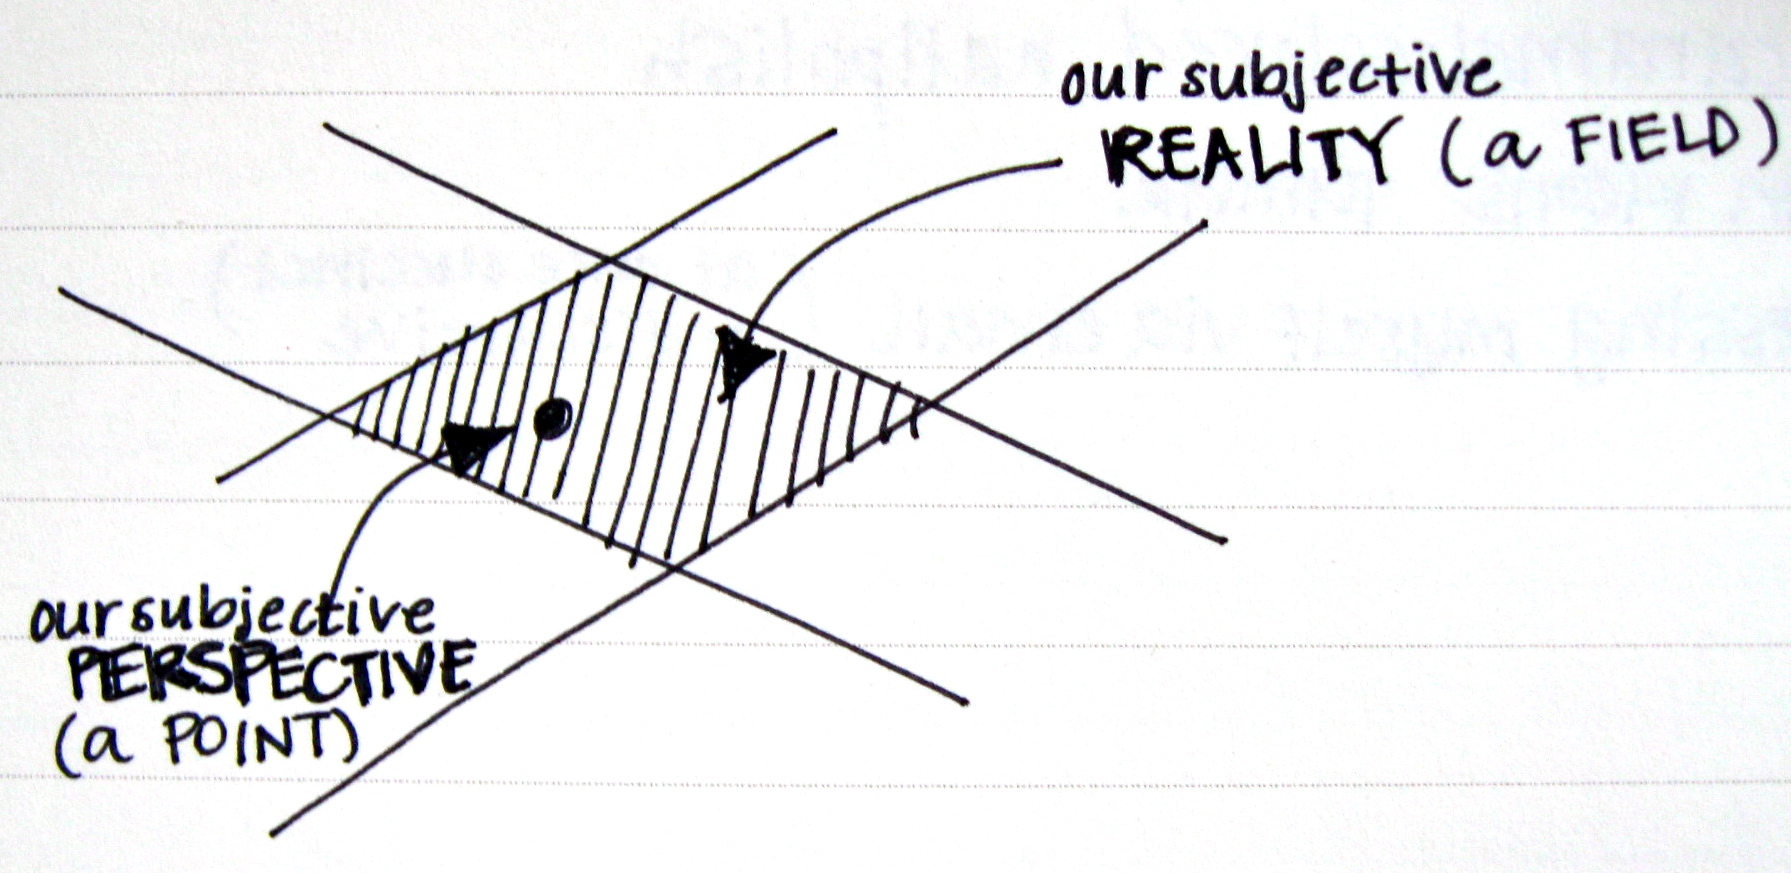 our subjective
REALITY (a FIELD)
our subjective
PERSPECTIVE
(a POINT)